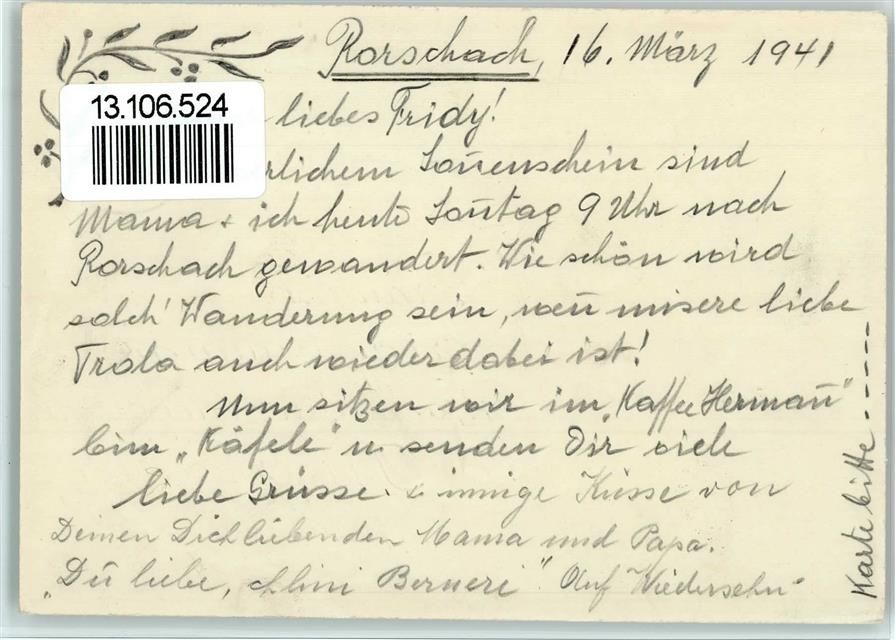 Rorschach, 16. März 1941
13.106.524
liebes Fridy!
rlichem Soñenschein sind
Mama + ich heute Soñtag 9 Uhr nach
Rorschach gewandert. Wie schön wird
solch' Wanderung sein, weñ unsere liebe
Trola auch wieder dabei ist!
Nun sitzen wir im „Kaffee Hermañ"
bim „Käfele" u. senden Dir viele
liebe Grüsse & innige Küsse von
Deinen Dichliebenden Mama und Papa.
„Dū liebe, chlini Berneri". Auf Wiedersehn
Karte bitte -----